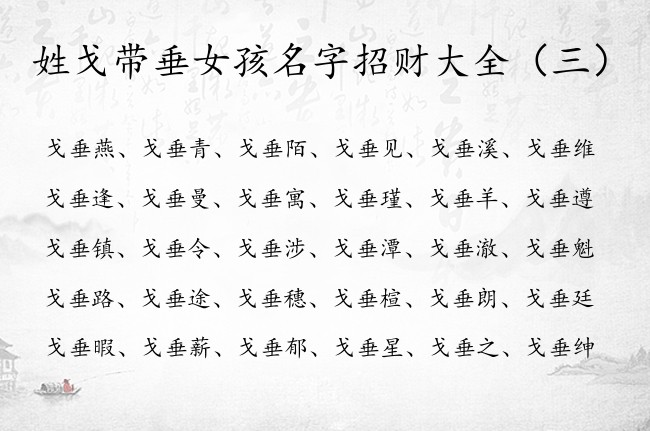 姓戈带垂女孩名字招财大全（三）
戈垂燕、戈垂青、戈垂陌、戈垂见、戈垂溪、戈垂维
戈垂逢、戈垂曼、戈垂寓、戈垂瑾、戈垂羊、戈垂遵
戈垂镇、戈垂令、戈垂涉、戈垂潭、戈垂澈、戈垂魁
戈垂路、戈垂途、戈垂穗、戈垂楦、戈垂朗、戈垂廷
戈垂暇、戈垂薪、戈垂郁、戈垂星、戈垂之、戈垂绅